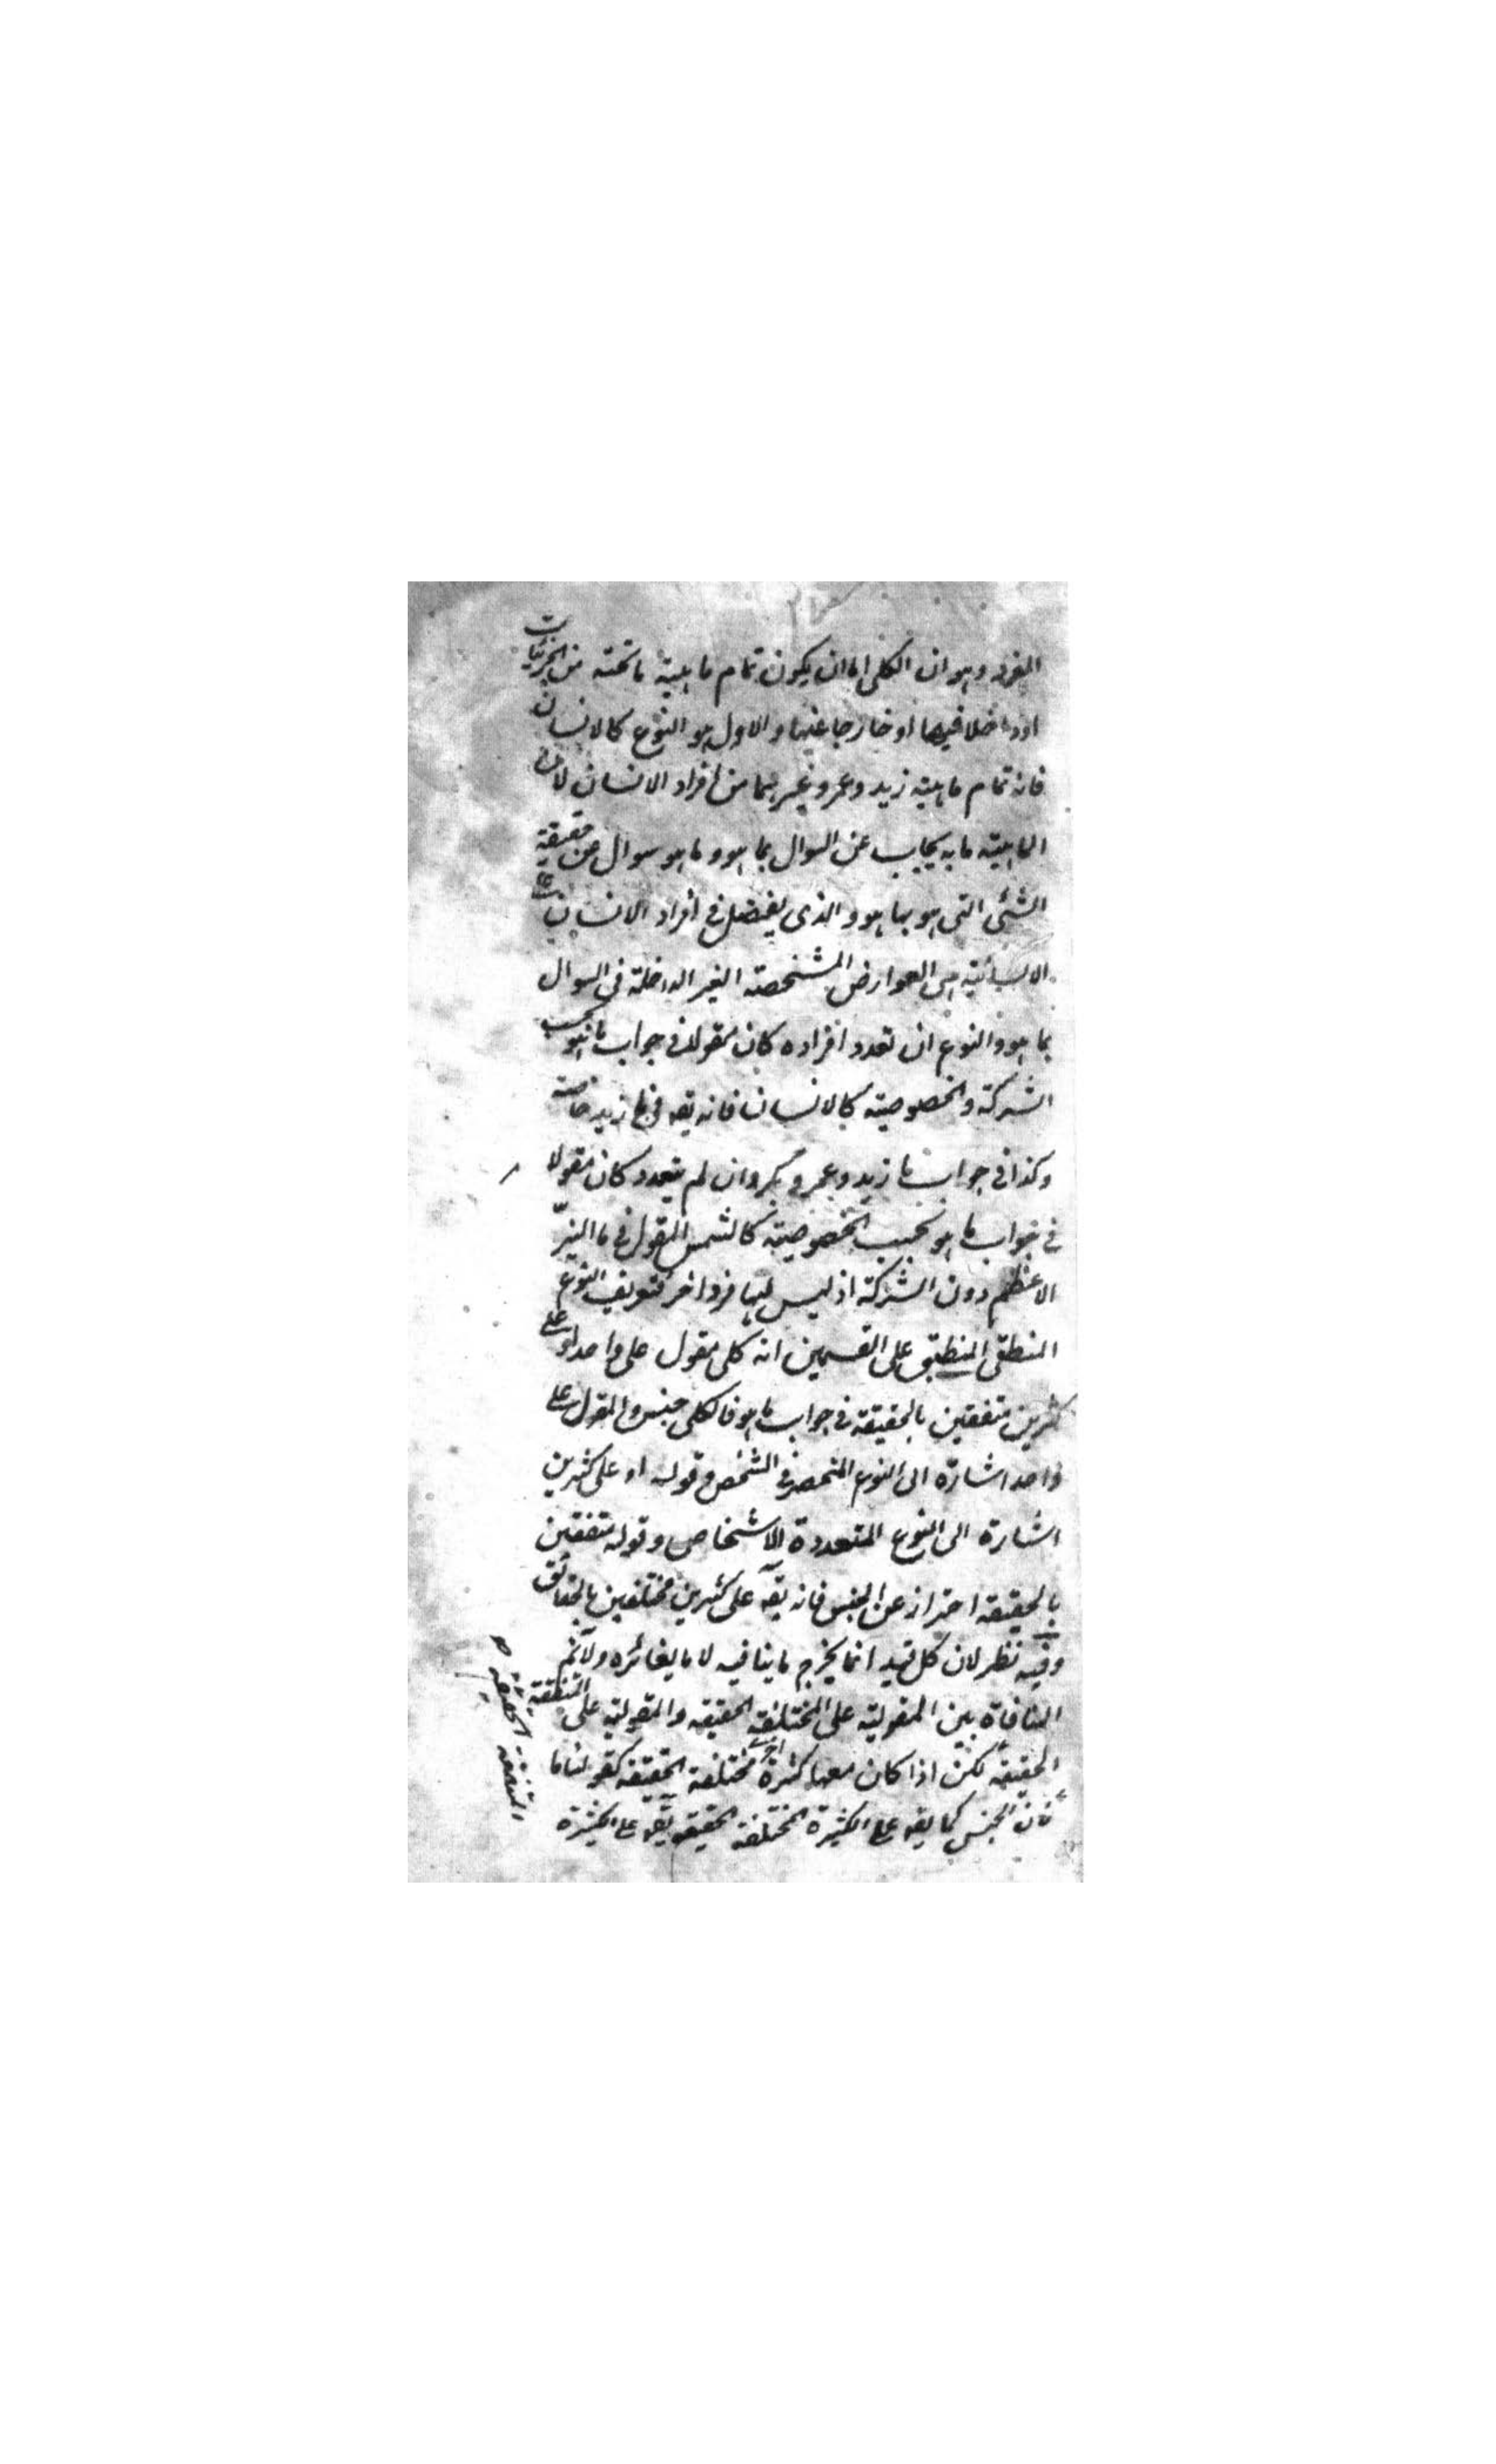 المفرد وهو ان الكلى اما ان يكون تمام ماهية ما تحته من الجزئيات
او داخلا فيها او خارجا عنها والاول هو النوع كالانسان
فانه تمام ماهية زيد وعمرو وغيرهما من افراد الانسان لان
الماهية ما به يجاب عن السوال بما هو وما هو سوال عن حقيقة
الشئى التى هو بها هو والذى يفضل فى أفراد الانسان على
الانسانية هى العوارض المشخصة الغير الداخلة فى السوال
بما هو والنوع ان تعدد افراده كان مقولا فى جواب ما هو بحسب
الشركة والخصوصية كالانسان فانه يقه فى ما زيد خاصة
وكذا فى جواب ما زيد وعمرو وبكر وان لم يتعدد كان مقولا
فى جواب ما هو بحسب الخصوصية كالشمس المقول فى ما النيّر
الاعظم دون الشركة اذ ليس لها فرد اخر فتعريف النوع
المنطقى المنطبق على القسمين انه كلى مقول على واحد او على
كثيرين متفقين بالحقيقة فى جواب ما هو فالكلى جنس والمقول على
واحد اشارة الى النوع المنحصر فى الشخص وقوله او على كثيرين
اشارة الى النوع المتعددة الاشخاص وقوله متفقين
بالحقيقة احتراز عن الجنس فانه يقه على كثيرين مختلفين بالحقائق
وفيه نظر لان كل قيد انما يخرج ما ينافيه لا ما يغائره ولانم
المنافاة بين المقولية على المختلفة الحقيقة والمقولية على المتفقة
الحقيقة لكن اذا كان معها كثرة اخرى مختلفة الحقيقة كقولنا ما
فان الجنس كما يقه على الكثيرة المختلفة الحقيقة يقه على الكثيرة
المتفقة الحقيقة